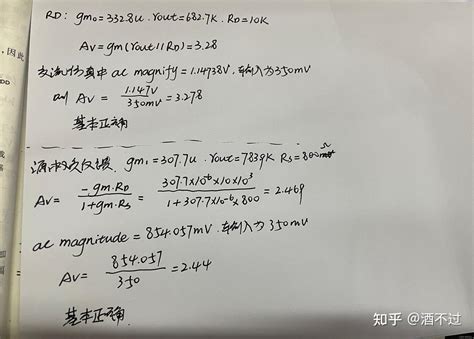 ，因此
DD
RD: gm0=332.8u. rout=682.7K. RD=10K
Av=gm(rout∥RD)=3.28
交流仿真中 ac magnify=1.14738V, 输入为350mV
则 Av= 1.147V / 350mV = 3.278
基本正确
gm1=307.7u. rout=7839K RS=800Ω
Av= -gm.RD / 1+gm.RS = 307.7×10⁻⁶×10×10³ / 1+307.7×10⁻⁶×800 = 2.469
ac magnitude=854.057mV. 输入为350mV
Av= 854.057 / 350 = 2.44
基本正确
知乎 @酒不过